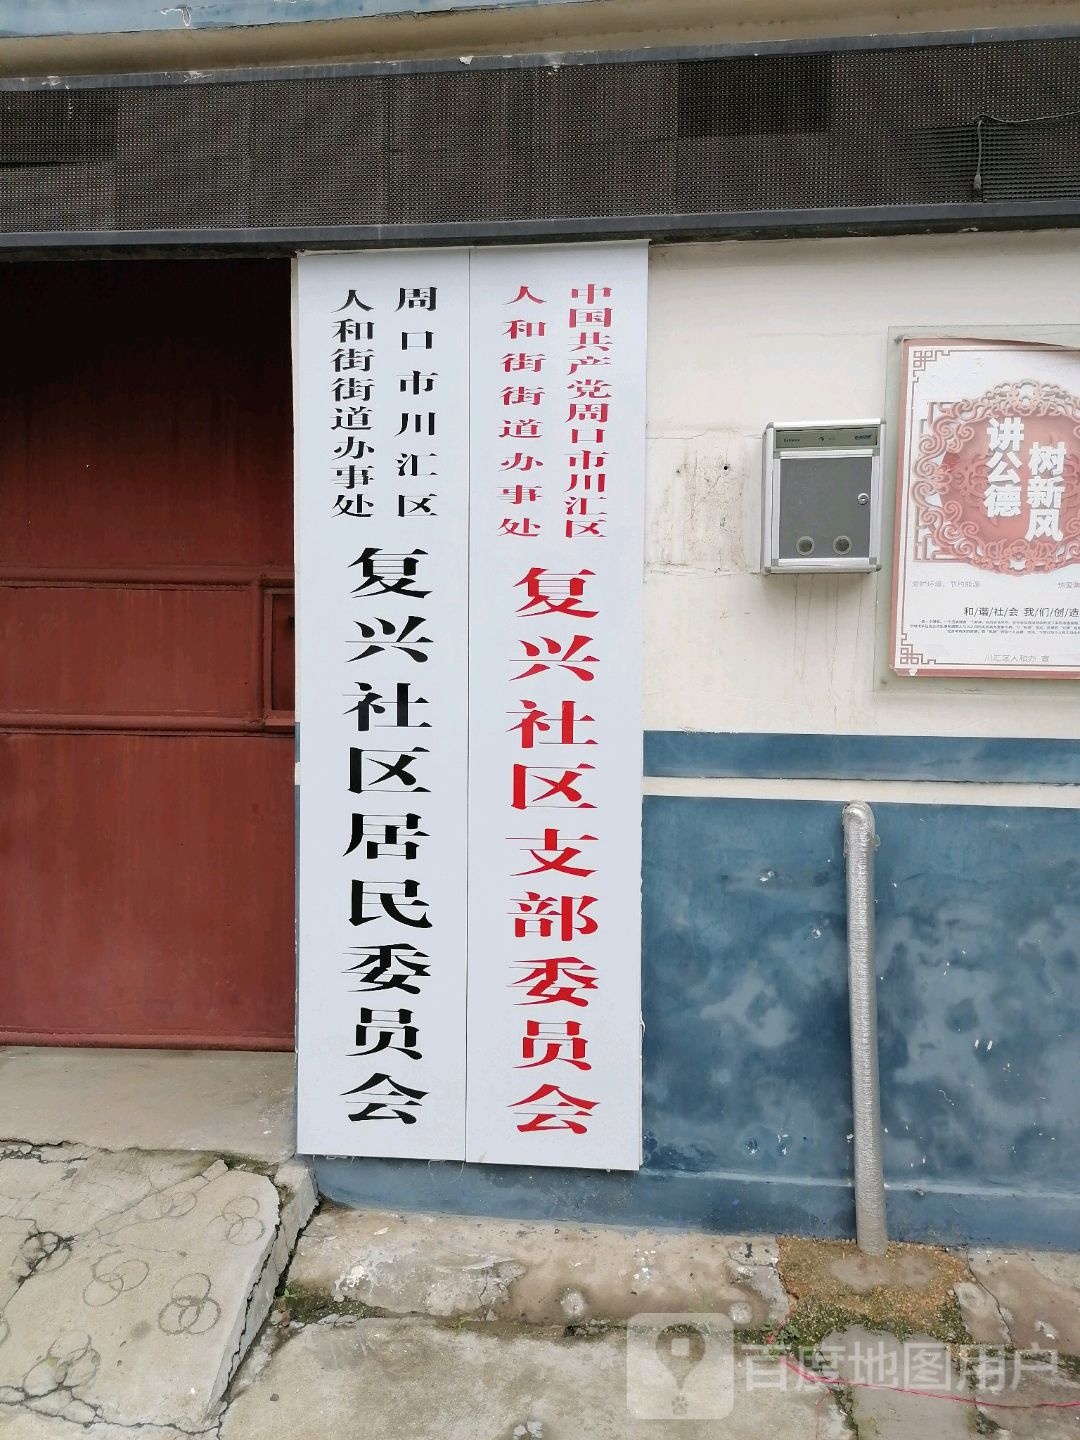 中国共产党周口市川汇区
人和街街道办事处
复兴社区支部委员会
周口市川汇区
人和街街道办事处
复兴社区居民委员会
讲公德
树新风
爱护环境，节约能源
和/谐/社/会 我/们/创/造
川汇区人和办·宣
百度地图用户